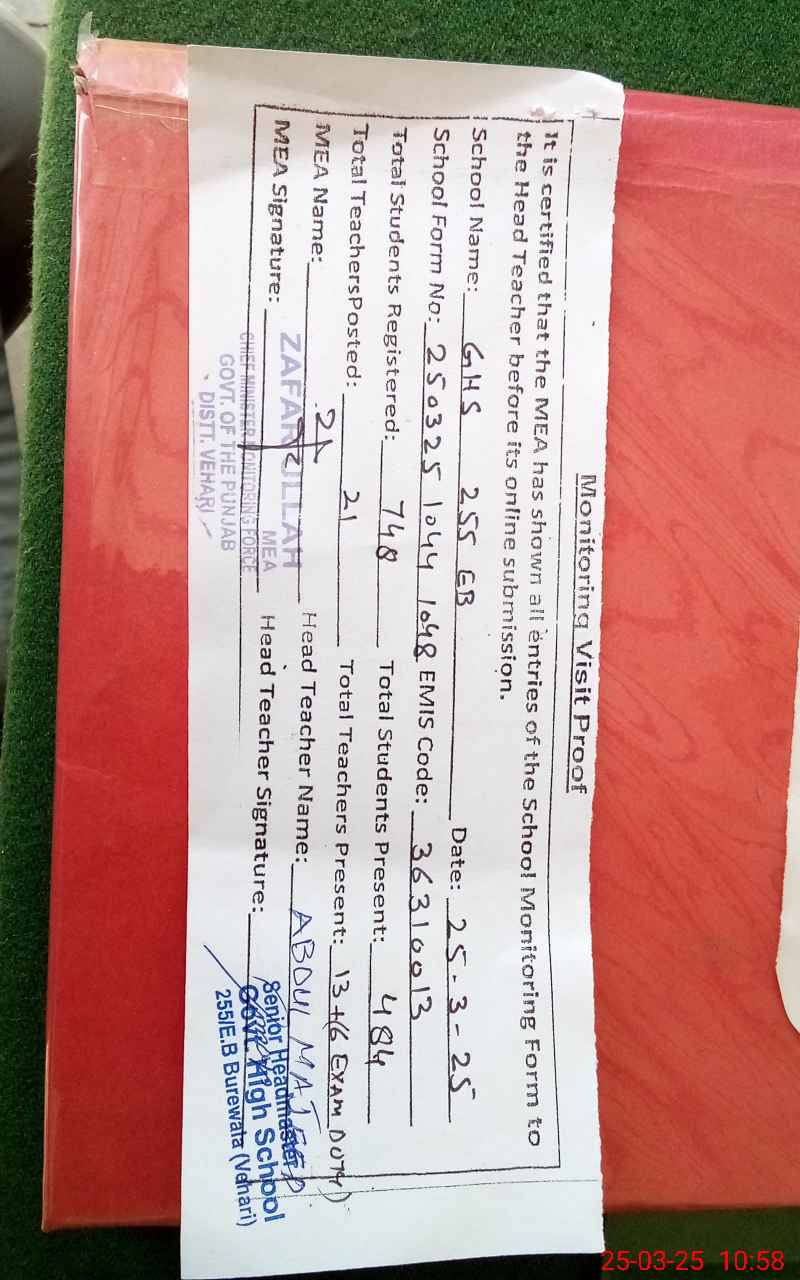 Monitoring Visit Proof
It is certified that the MEA has shown all entries of the School Monitoring Form to
the Head Teacher before its online submission.
School Name: GHS 255 EB Date: 25-3-25
School Form No: 250325 1044 1048 EMIS Code: 36310013
Total Students Registered: 748 Total Students Present: 484
Total TeachersPosted: 21 Total Teachers Present: 13+(6 EXAM DUTY)
MEA Name: ZAFAR ULLAH Head Teacher Name: ABDUL MAJEED
MEA
MEA Signature: Head Teacher Signature:
CHIEF MINISTER MONITORING FORCE
GOVT. OF THE PUNJAB
DISTT. VEHARI
Senior Headmaster
Govt. High School
255/E.B Burewala (Vehari)
25-03-25 10:58